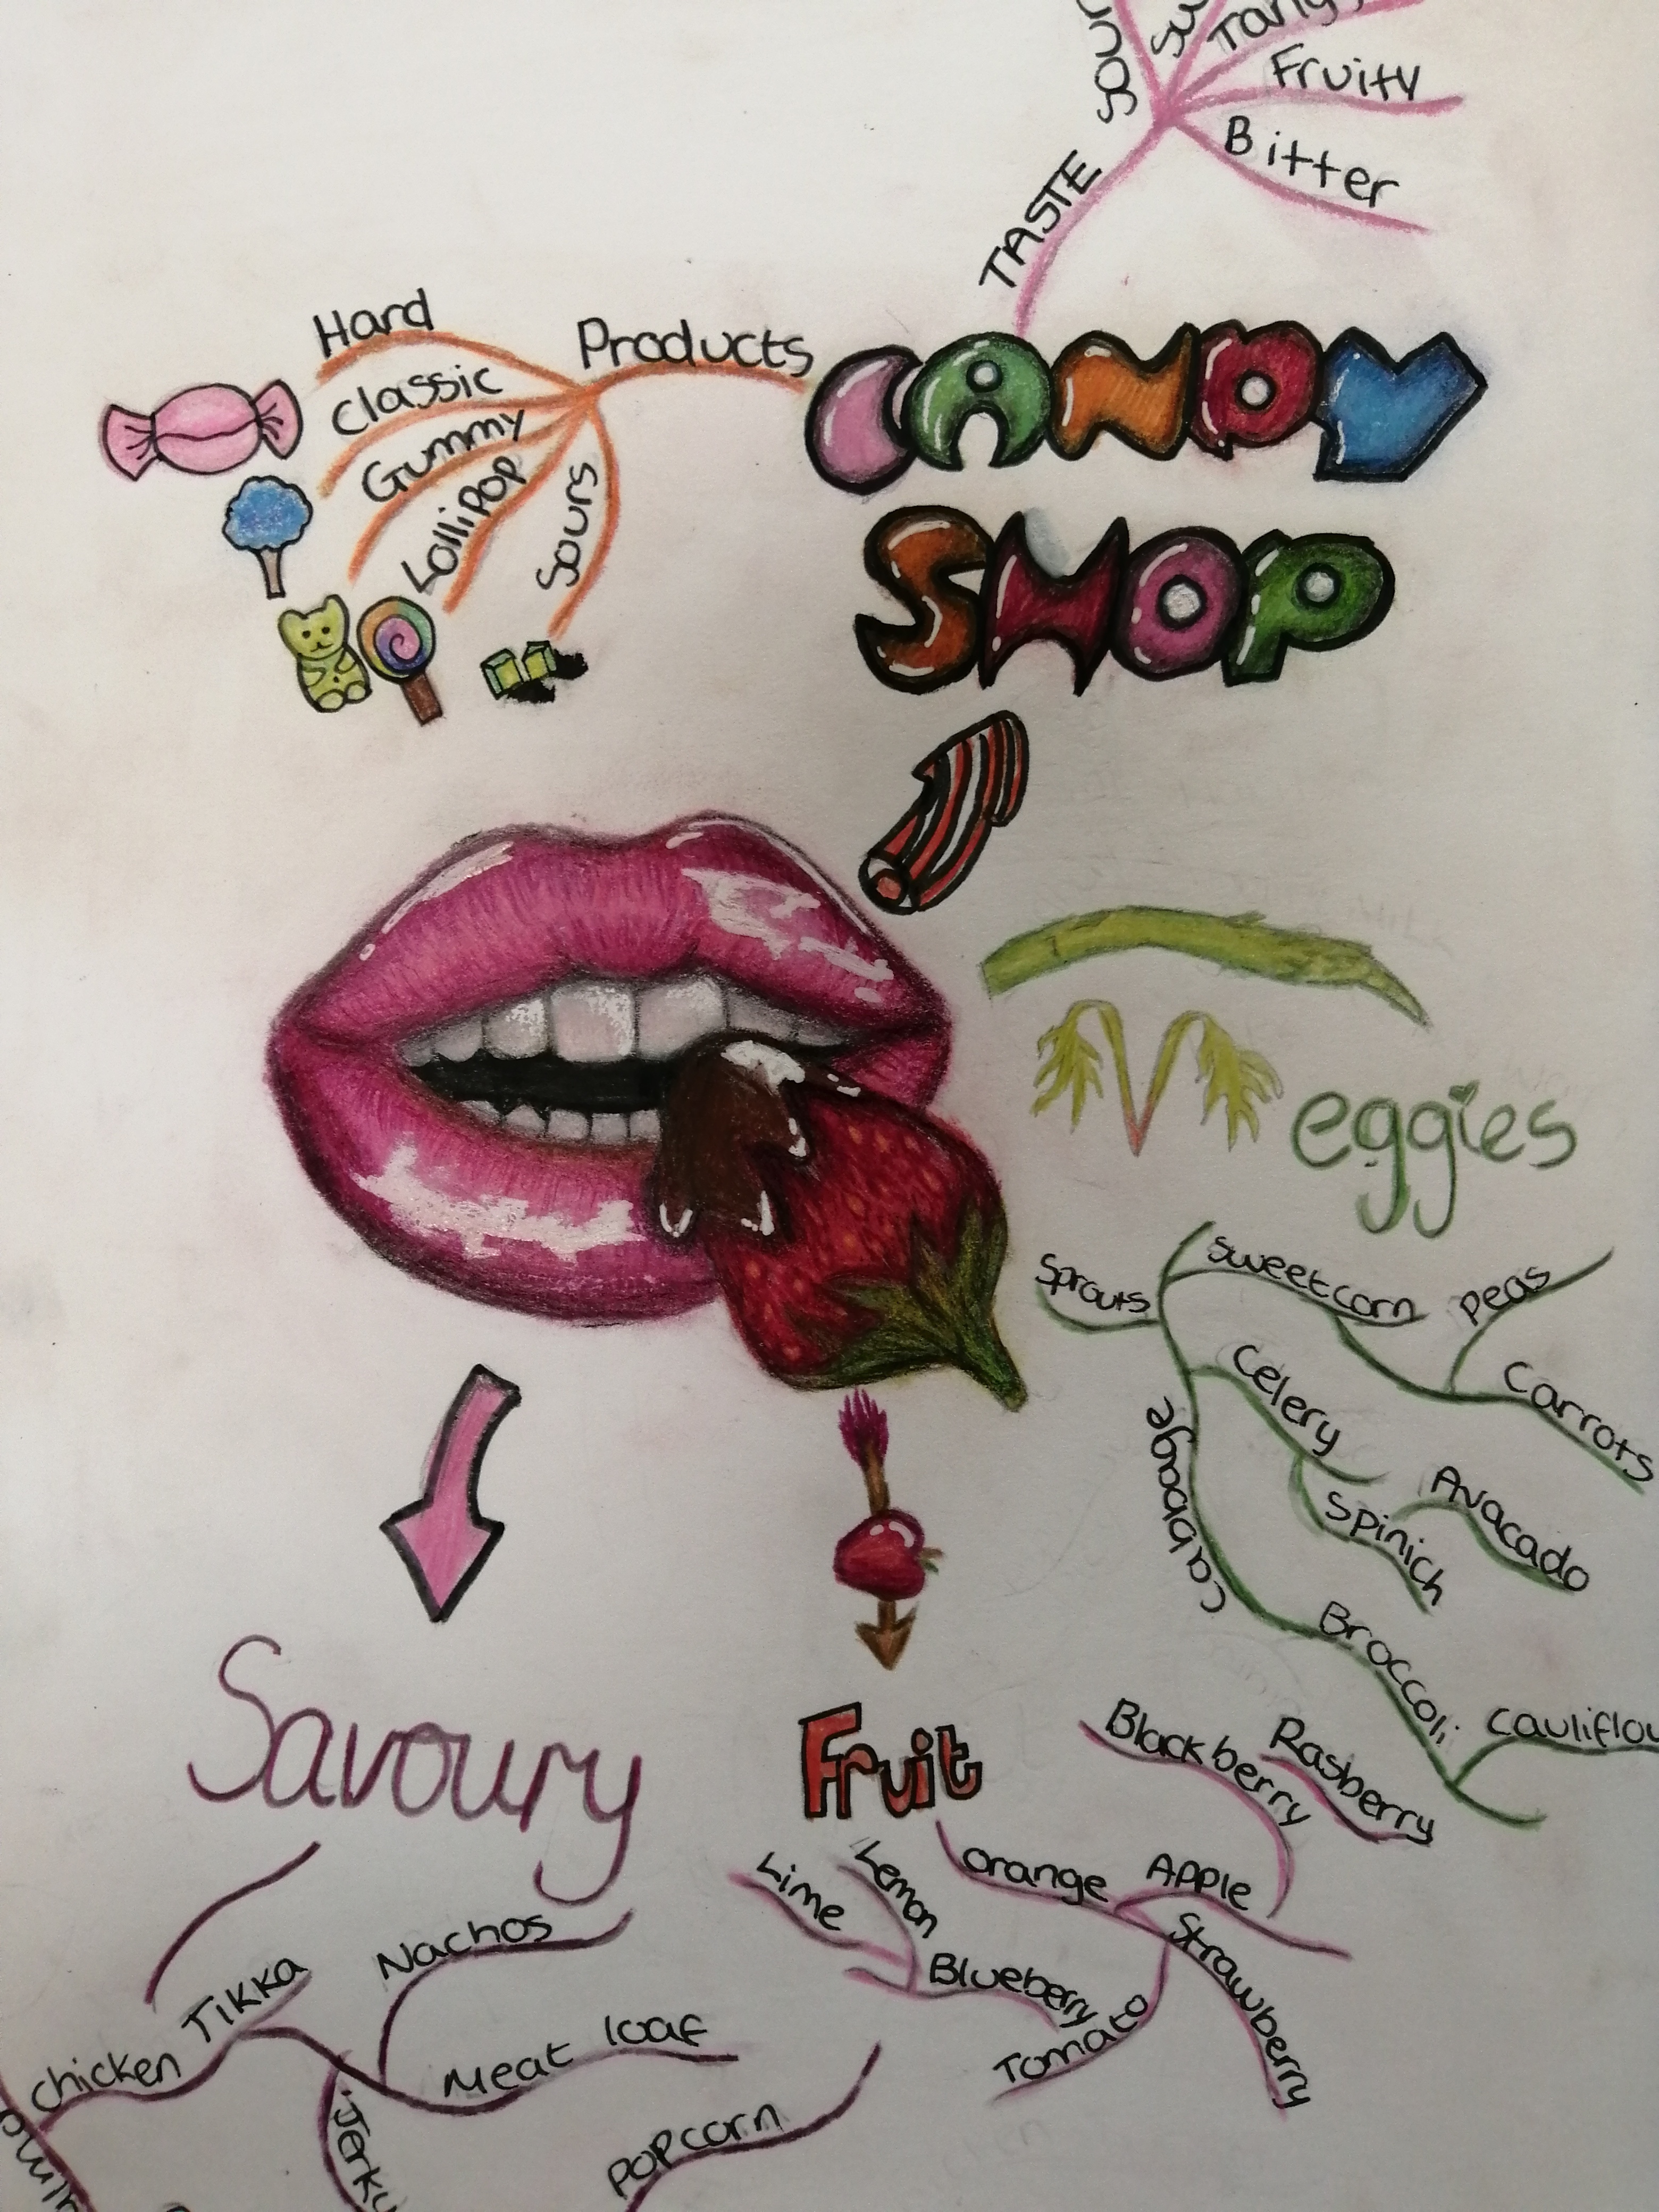 Sour
Tangy
Fruity
Bitter
TASTE
Hard
Products
Classic
Gummy
LolliPOP
Sours
CANDY
SHOP
Veggies
Sprouts
sweetcorn
Peas
Carrots
Celery
Cabbage
Spinich
Avacado
Broccoli
Savoury
Fruit
Blackberry
Rasberry
Lime
Lemon
orange
Apple
Strawberry
Blueberry
Tomato
Nachos
Tikka
Chicken
Meat loaf
Popcorn